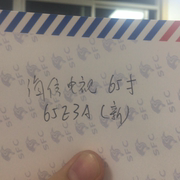 海信电视 65寸
65E3A(新)